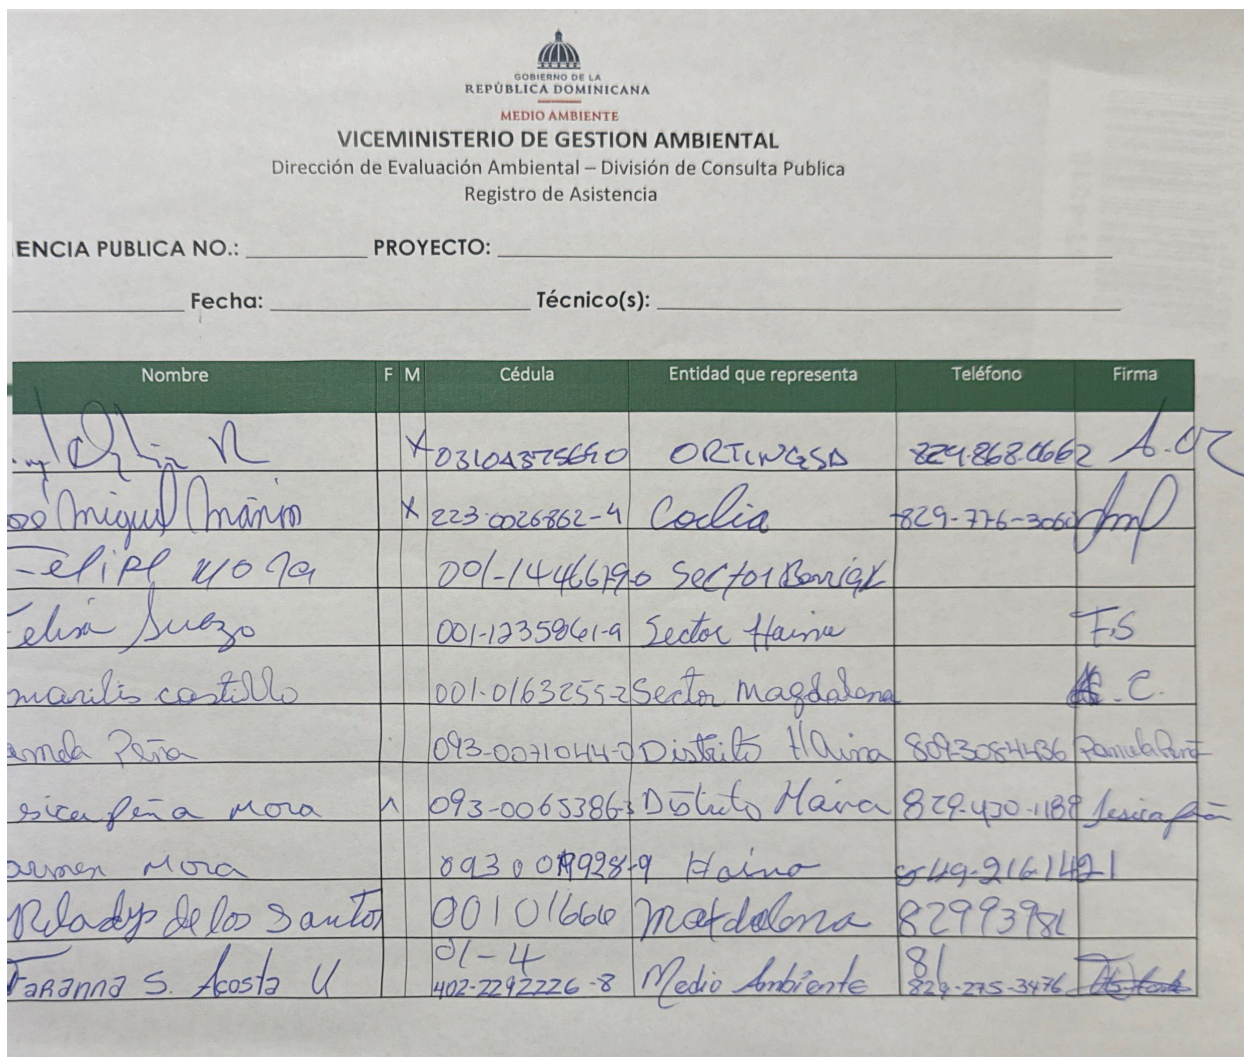 GOBIERNO DE LA
REPÚBLICA DOMINICANA
MEDIO AMBIENTE
VICEMINISTERIO DE GESTION AMBIENTAL
Dirección de Evaluación Ambiental – División de Consulta Publica
Registro de Asistencia
ENCIA PUBLICA NO.: PROYECTO:
Fecha: Técnico(s):
Nombre F M Cédula Entidad que representa Teléfono Firma
X ORTINGSA
Miguel X 223-0026862-4 Codia 829-776-3060
Felipe Mora Sector
Felisa Suezo Sector Haina F.S
marilis castillo 001-0163255-2 Sector Magdalena C.
Peña 093-0071044-0 Distrito Haina 809-3084436 Pamela
esica Peña Mora 093-0065386-3 Distrito Haina 829-430-1188 Jesica
Mora Haina 849-216-1421
de los Santos 00101666 Matdalena 82993981
01-4 81
Faranna S. Acosta U 402-2292226-8 Medio Ambiente 829-275-3476